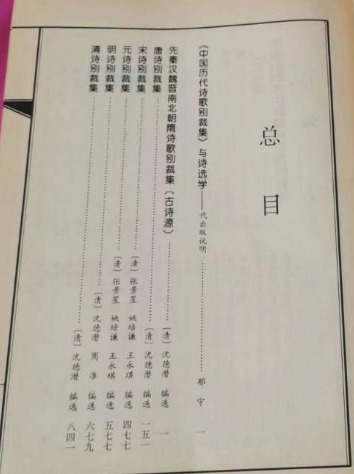 总目
《中国历代诗歌别裁集》与诗选学——代出版说明……郑宇 一
先秦汉魏晋南北朝隋诗歌别裁集（古诗源）……〔清〕沈德潜 编选 一
唐诗别裁集……〔清〕沈德潜 编选 一五一
宋诗别裁集……〔清〕张景星 姚培谦 王永琪 编选 四七七
元诗别裁集……〔清〕张景星 姚培谦 王永琪 编选 五七七
明诗别裁集……〔清〕沈德潜 周准 编选 六七九
清诗别裁集……〔清〕沈德潜 编选 八四一